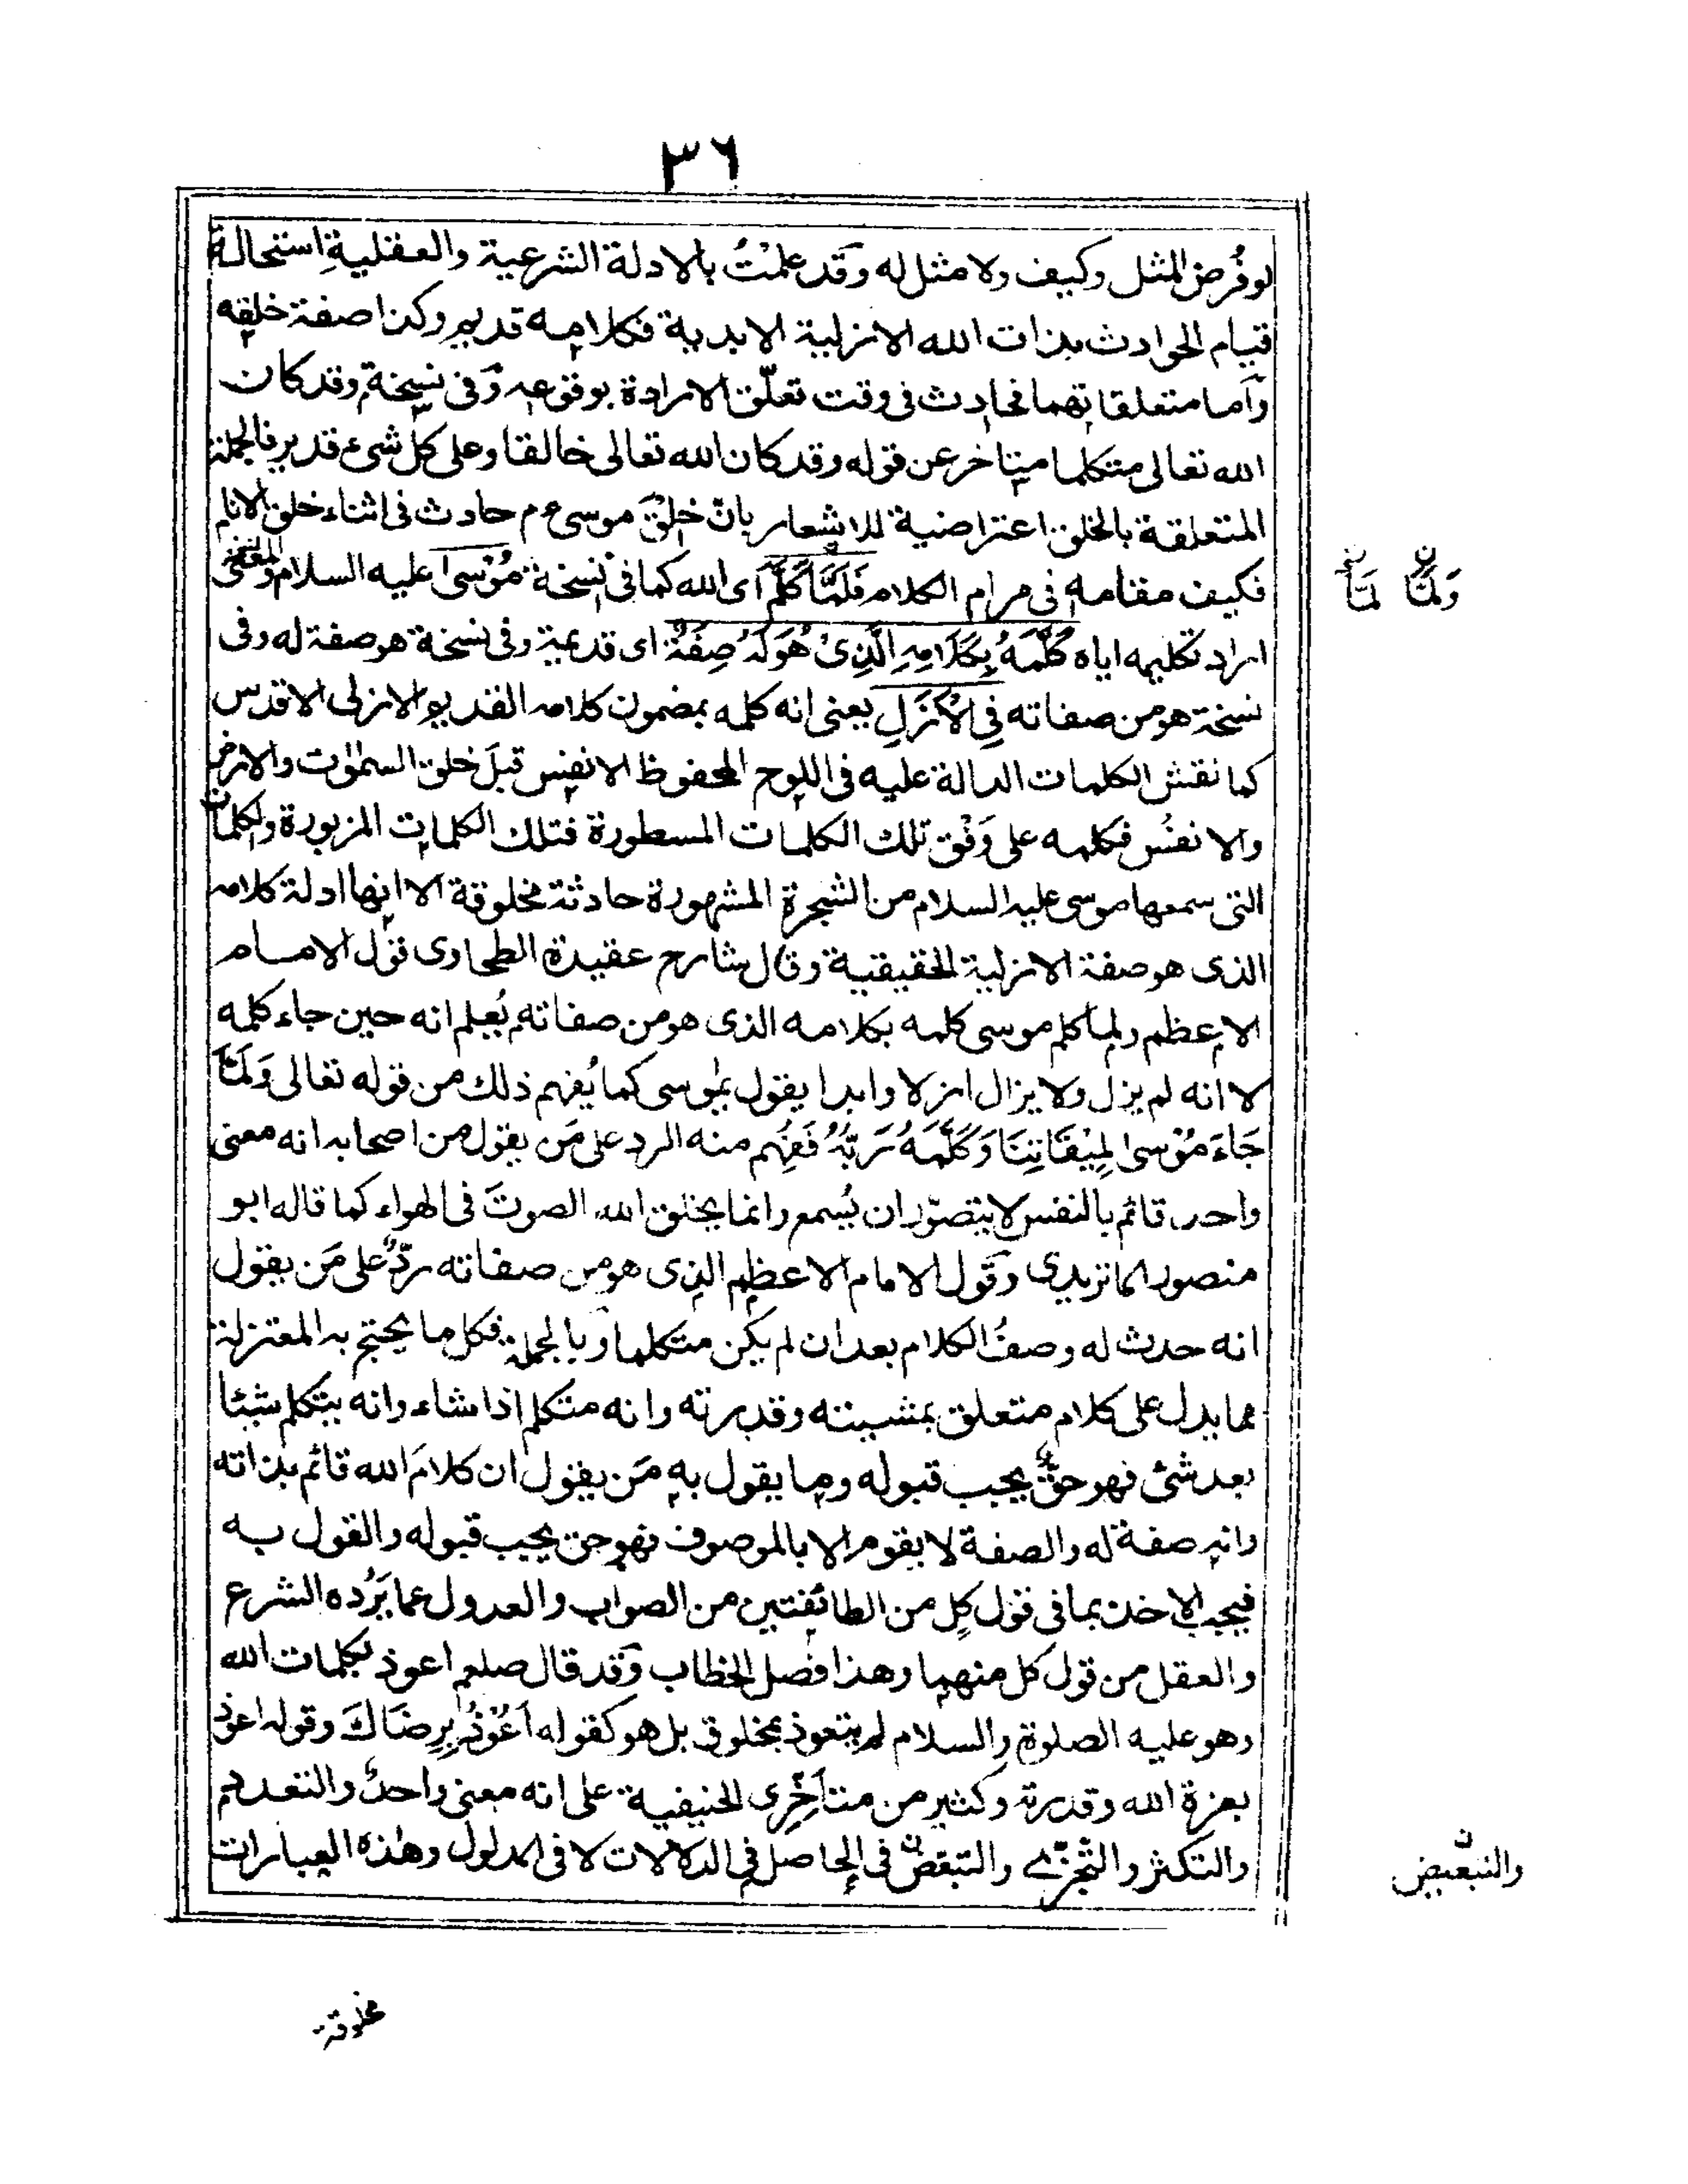 ٣٦
لو فُرض المثل وكيف ولا مثل له وقد علمتُ بالادلة الشرعية والعقليةِ استحالة
قيام الحوادث بذات الله الازلية الابدية فكلامه قديم وكذا صفة خلقه
وأما متعلقاتهما فحادث فى وقت تعلّق الارادة بوقوعه وفى نسخة وقد كان
الله تعالى متكلما متاخر عن قوله وقد كان الله تعالى خالقا وعلى كل شىء قدير فالجملة
المتعلقة بالخلق اعتراضية للاشعار بانّ خلقَ موسى ع م حادث فى اثناء خلق الانام
فكيف مقامه فى مرام الكلام فَلَمَّا كَلَّمَ اى الله كما فى نسخة مُوْسى عليه السلام والمعنى
اراد تكليمه اياه كَلَّمَهُ بِكَلَامِهِ الَّذِىْ هُوَ لَهُ صِفَةٌ اى قديمة وفى نسخة هو صفة له وفى
نسخة هو من صفاته فِي الْاَزَلِ يعنى انه كلمه بمضمون كلامه القديم الازلى الاقدس
كما نقش الكلمات الدالة عليه فى اللوح المحفوظ الانفس قبلَ خلق السمٰوٰت والارض
والانفُس فكلمه على وَفْق تلك الكلمات المسطورة فتلك الكلمات المزبورة والكلمات
التى سمعها موسى عليه السلام من الشجرة المشهورة حادثة مخلوقة الا انها ادلة كلامه
الذى هو صفة الازلية الحقيقية وقال شارح عقيدة الطحاوى قول الامام
الاعظم ولما كلم موسى كلمه بكلامه الذى هو من صفاته يُعلم انه حين جاء كلمه
لا انه لم يزل ولا يزال ازلا وابدا يقول يموسى كما يُفهم ذلك من قوله تعالى وَلَمَّا
جَاءَ مُوْسى لِمِيْقَاتِنَا وَكَلَّمَهُ رَبُّهُ فَفُهِم منه الرد على مَن يقول من اصحابه انه معنى
واحد قائم بالنفس لا يتصوّر ان يُسمع وانما يخلق الله الصوتَ فى الهواء كما قاله ابو
منصور الماتريدى وقول الامام الاعظم الذى هو من صفاته ردٌّ على مَن يقول
انه حدث له وصفُ الكلام بعد ان لم يكن متكلما وبالجملة فكل ما يحتج به المعتزلة
مما يدل على كلام متعلق بمشيته وقدرته وانه متكلم اذا شاء وانه يتكلم شيئا
بعد شئ فهو حقٌّ يجب قبوله وما يقول به مَن يقول ان كلامَ الله قائم بذاته
وانه صفة له والصفة لا يقوم الا بالموصوف فهو حق يجب قبوله والقول به
فيجب الاخذ بما فى قول كلٍ من الطائفتين من الصواب والعدول عما يَرُده الشرع
والعقل من قول كل منهما وهذا فصل الخطاب وقد قال صلعم اعوذ بكلمات الله
وهو عليه الصلوة والسلام لم يتعوذ بمخلوق بل هو كقوله اَعُوْذُ بِرِضَاكَ وقوله اعوذ
بعزة الله وقدرته وكثير من متأخِّرى الحنيفية على انه معنى واحدٌ والتعدد
والتكثر والتجزّے والتبعض فى الحاصل فى الدلالات لا فى المدلول وهذه العبارات
وَلَمَّا لَمَّا
والتبعيض
مخلوقة